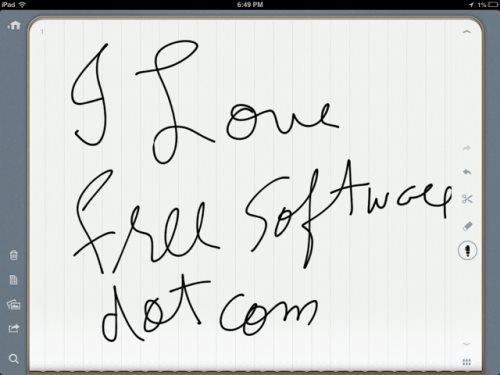 iPad 6:49 PM 1%
1
I Love
Free Software
dot com